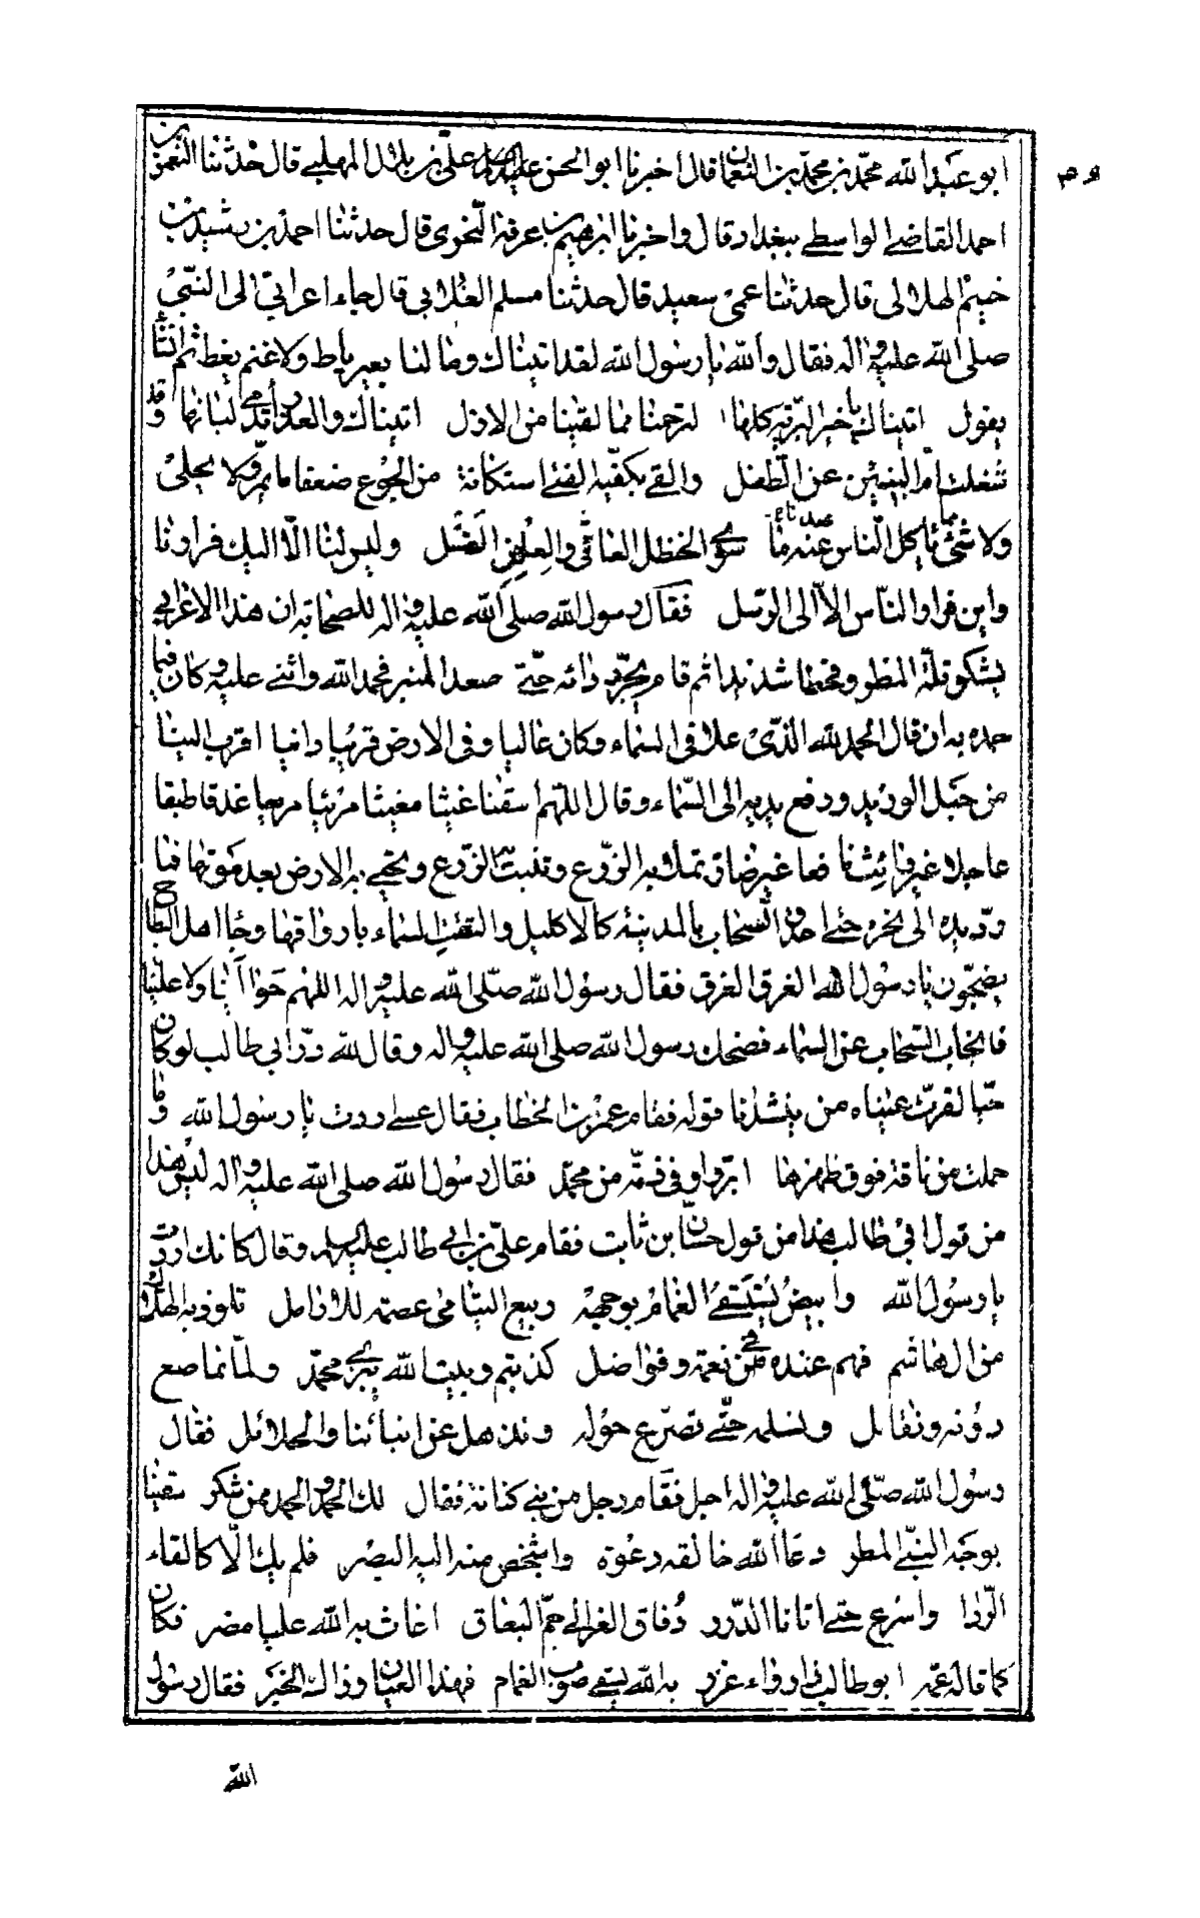 ابو عبد الله محمد بن محمد بن النعمان قال اخبرنا ابو الحسن علي بن بلال المهلبي قال حدثنا النعمان بن
احمد القاضي الواسطي ببغداد قال واخبرنا ابرهيم بن عرفة النحوي قال حدثنا احمد بن رشيد بن
خيثم الهلالي قال حدثنا عمي سعيد قال حدثنا مسلم الغلابي قال جاء اعرابي الى النبي
صلى الله عليه واله فقال والله يا رسول الله لقد اتيناك وما لنا بعير ياط ولا غنم يغط ثم انشا
يقول اتيناك يا خير البرية كلها لترحمنا مما لقينا من الازل اتيناك والعذراء يدمى لبانها وقد
شغلت ام البنين عن الطفل والقى بكفيه الفتى استكانة من الجوع ضعفا ما يمر ولا يحلى
ولا شئ مما ياكل الناس عندنا سوى الحنظل العامي والعلهز الفسل وليس لنا الا اليك فرارنا
واين فرار الناس الا الى الرسل فقال رسول الله صلى الله عليه واله للصحابة ان هذا الاعرابي
يشكو قلة المطر وقحطا شديدا ثم قام يجر ردائه حتى صعد المنبر فحمد الله واثنى عليه وكان فيما
حمده به ان قال الحمد لله الذي علا في السماء وكان عاليا وفي الارض قريبا دانيا اقرب الينا
من حبل الوريد ورفع يديه الى السماء وقال اللهم اسقنا غيثا مغيثا مريئا مريعا غدقا طبقا
عاجلا غير رائث نافعا غير ضار تملا به الضرع وتنبت به الزرع وتحيي به الارض بعد موتها فما
رد يده الى نحره حتى احدق السحاب بالمدينة كالاكليل والتقت السماء بارواقها وجاء اهل البطاح
يضجون يا رسول الله الغرق الغرق فقال رسول الله صلى الله عليه واله اللهم حوالينا ولا علينا
فانجاب السحاب عن السماء فضحك رسول الله صلى الله عليه واله وقال لله در ابي طالب لو كان
حيا لقرت عيناه من ينشدنا قوله فقام عمر بن الخطاب فقال عسى اردت يا رسول الله وما
حملت من ناقة فوق ظهرها ابر واوفى ذمة من محمد فقال رسول الله صلى الله عليه واله ليس هذا
من قول ابي طالب هذا من قول حسان بن ثابت فقام علي بن ابي طالب عليه السلام وقال كانك اردت
يا رسول الله وابيض يستسقى الغمام بوجهه ربيع اليتامى عصمة للارامل تلوذ به الهلاك
من ال هاشم فهم عنده في نعمة وفواضل كذبتم وبيت الله يبزى محمد ولما نماصع
دونه ونقاتل ونسلمه حتى نصرع حوله ونذهل عن ابنائنا والحلائل فقال
رسول الله صلى الله عليه واله اجل فقام رجل من بني كنانة فقال لك الحمد والحمد ممن شكر سقينا
بوجه النبي المطر دعا الله خالقه دعوة واشخص منه اليه البصر فلم يك الا كالقاء
الردا واسرع حتى اتانا الدرر دفاق العزالي جم البعاق اغاث به الله عليا مضر فكان
كما قاله عمه ابو طالب ذا رواء غزر به الله يسقي صوب الغمام فهذا العيان وذاك الخبر فقال رسول
الله